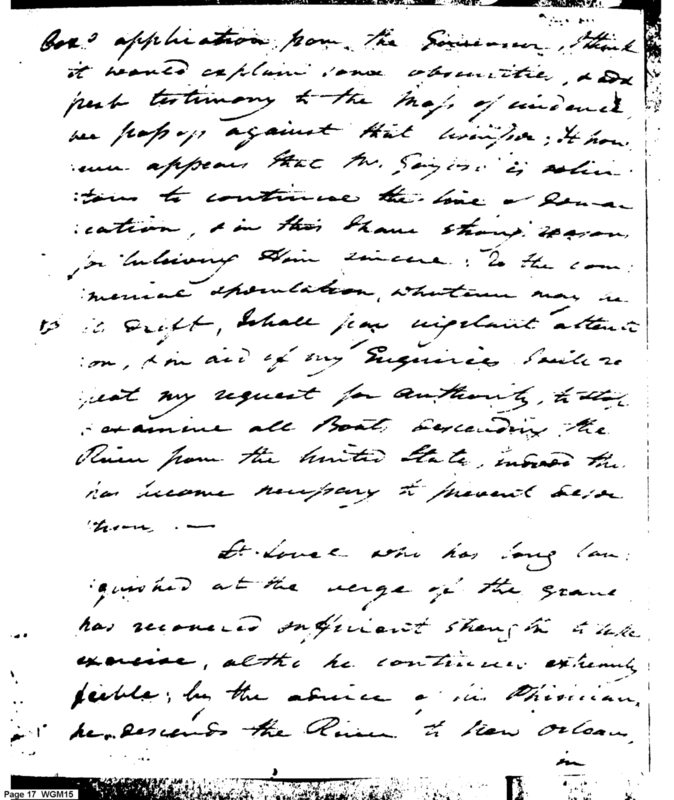 Coxs application from the Governour, I think
it would explain some obscurities, & add
fresh testimony to the Mass of evidence
we possess against that ; It how
ever appears that Mr. Gayoso is solici
:tous to continue the line of Demar
:cation, & in this I have strong reasons
for believing Him sincere: To the com:
mercial speculation, whatever may be
its drift, I shall pay vigilant attenti
:on, & in aid of my Enquiries I will re
:peat my request for authority, to stop
& examine all Boats descending the
River from the United States, indeed this
has become necessary to prevent deser
:tion. —
Lt. Lovell who has long lan:
:guished at the verge of the grave
has recovered sufficient strength to take
exercise, altho he continues extremely
feeble; by the advice of his Phisician,
he descends the River to New Orleans,
in
Page 17 WGM15